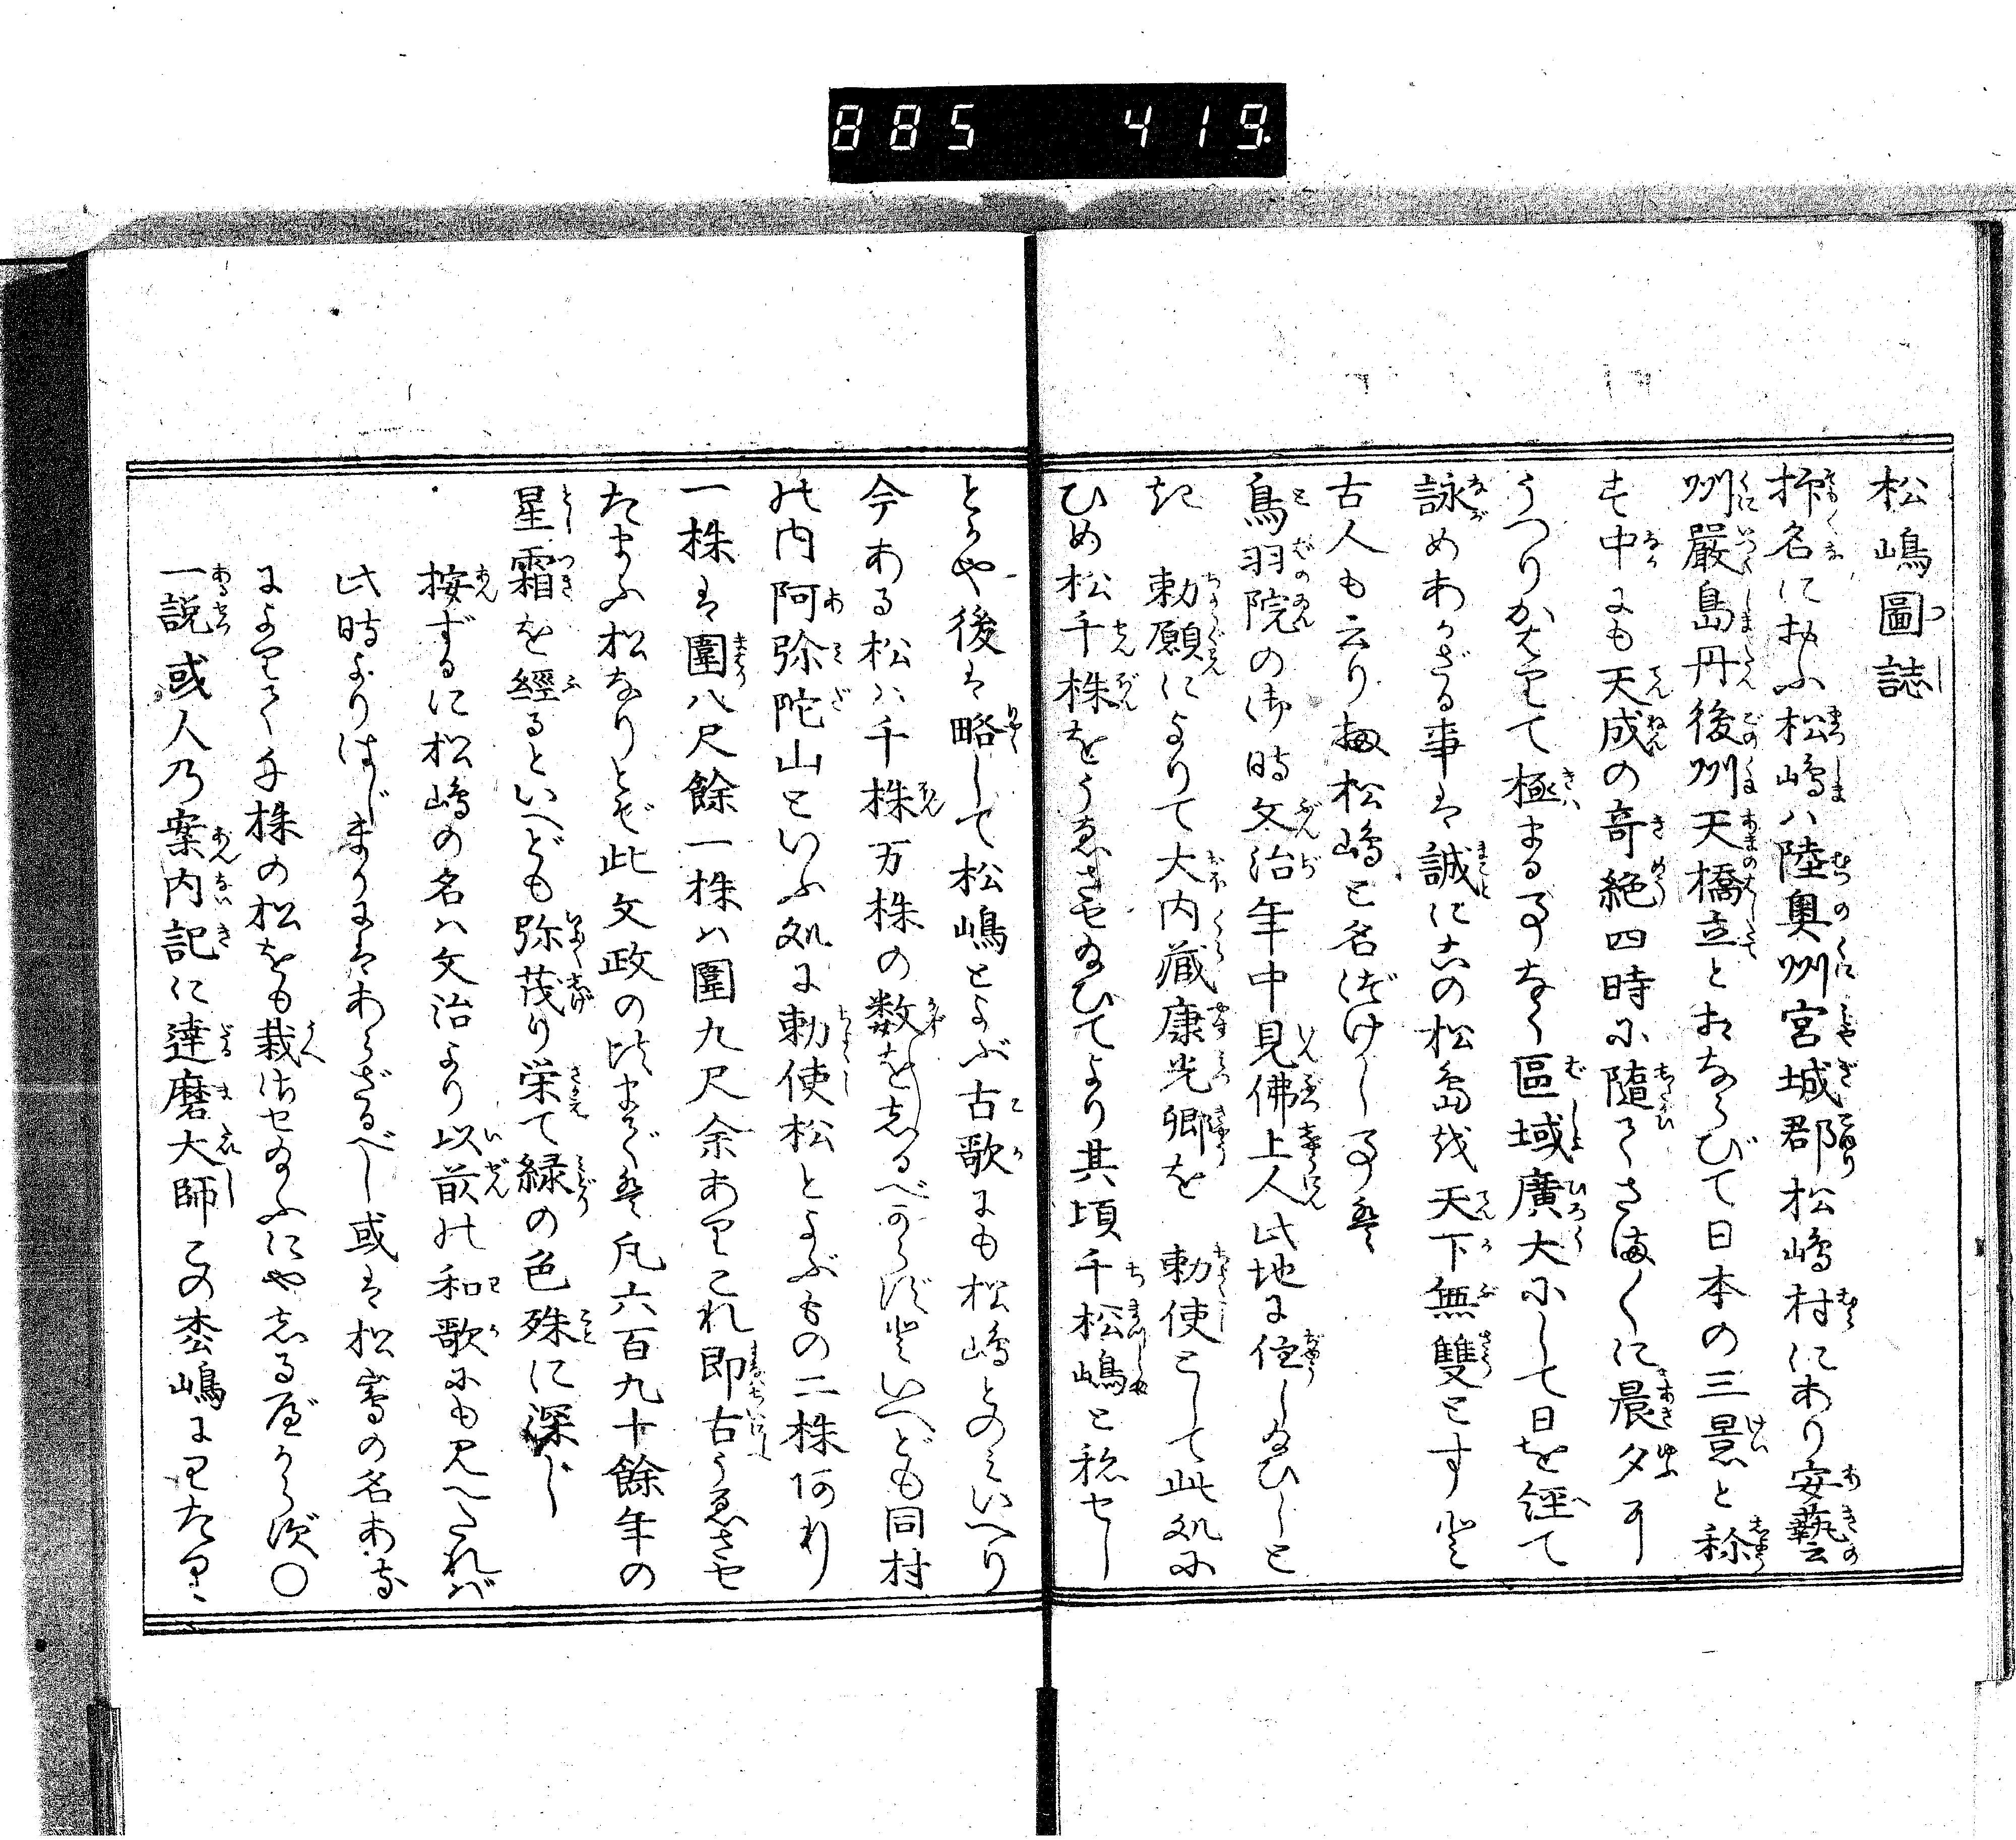 885 419
松嶋圖誌
抑名におふ松嶋ハ陸奥州宮城郡松嶋村にあり安藝
州嚴島丹後州天橋立とおならびて日本の三景と称
す中にも天成の奇絶四時に隨てさま〱に晨夕に
うつりかはりて極まる事なく區域廣大にして日を経て
詠めあかざる事は誠に此の松島を天下無雙とすと
古人も云り扨松嶋と名づけし事は
鳥羽院の御時文治年中見佛上人此地に住しゐひしと
き 勅願によりて大内藏康光卿を 勅使として此処に
ひめ松千株をうゑさせ給ひてより其頃千松嶋と称せし
とかや後は略して松嶋とよぶ古歌にも松嶋とのミいへり
今ある松ハ千株万株の数をしるべからずといへども同村
の内阿弥陀山といふ処に勅使松とよぶもの二株あり
一株は圍八尺餘一株は圍九尺余ありこれ即古うゑさせ
たまふ松なりとぞ此文政の比まで凡六百九十餘年の
星霜を經るといへども弥茂り栄て緑の色殊に深し
按ずるに松嶋の名ハ文治より以前の和歌にも見へたれバ
此時よりはじまりにはあらざるべし或は松嶌の名あるに
よりて千株の松をも栽させ給ふにやしるべからず〇
一説或人乃案内記に達磨大師この枩嶋にわたり